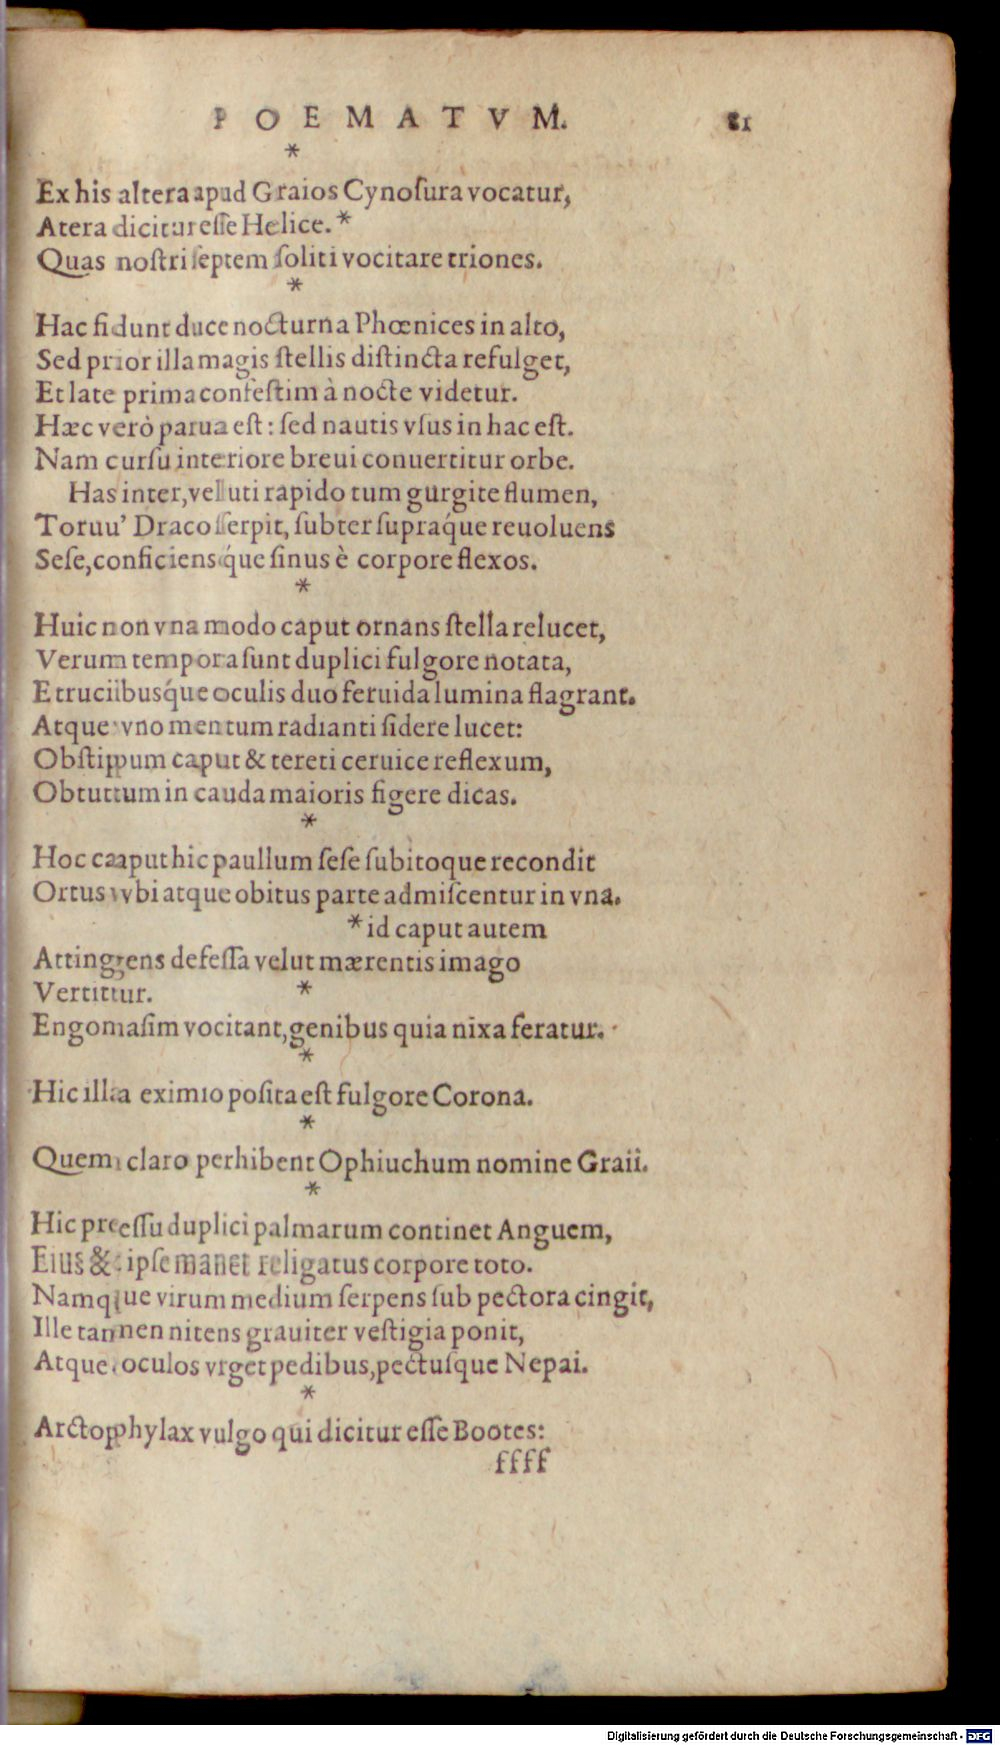 POEMATVM. 81
*
Ex his altera apud Graios Cynoſura vocatur,
Atera dicitur eſſe Helice. *
Quas noſtri ſeptem ſoliti vocitare triones.
*
Hac fidunt duce nocturna Phœnices in alto,
Sed prior illa magis ſtellis diſtincta refulget,
Et late prima confeſtim à nocte videtur.
Hæc verò parua eſt: ſed nautis vſus in hac eſt.
Nam curſu interiore breui conuertitur orbe.
Has inter, veluti rapido tum gurgite flumen,
Toruu' Draco ſerpit, ſubter ſupraq́ue reuoluens
Seſe, conficiensq́ue ſinus è corpore flexos.
*
Huic non vna modo caput ornans ſtella relucet,
Verum tempora ſunt duplici fulgore notata,
E truciibusq́ue oculis duo feruida lumina flagrant.
Atque vno mentum radianti ſidere lucet:
Obſtippum caput & tereti ceruice reflexum,
Obtuttum in cauda maioris figere dicas.
*
Hoc caaput hic paullum ſeſe ſubitoque recondit
Ortus vbi atque obitus parte admiſcentur in vna.
* id caput autem
Attinggens defeſſa velut mærentis imago
Vertittur. *
Engomaſim vocitant, genibus quia nixa feratur.
*
Hic illa eximio poſita eſt fulgore Corona.
*
Quem claro perhibent Ophiuchum nomine Graii.
*
Hic preeſſu duplici palmarum continet Anguem,
Eius & ipſe manet religatus corpore toto.
Namque virum medium ſerpens ſub pectora cingit,
Ille tamnen nitens grauiter veſtigia ponit,
Atque oculos vrget pedibus, pectuſque Nepai.
*
Arctopphylax vulgo qui dicitur eſſe Bootes:
ffff
Digitalisierung gefördert durch die Deutsche Forschungsgemeinschaft - DFG